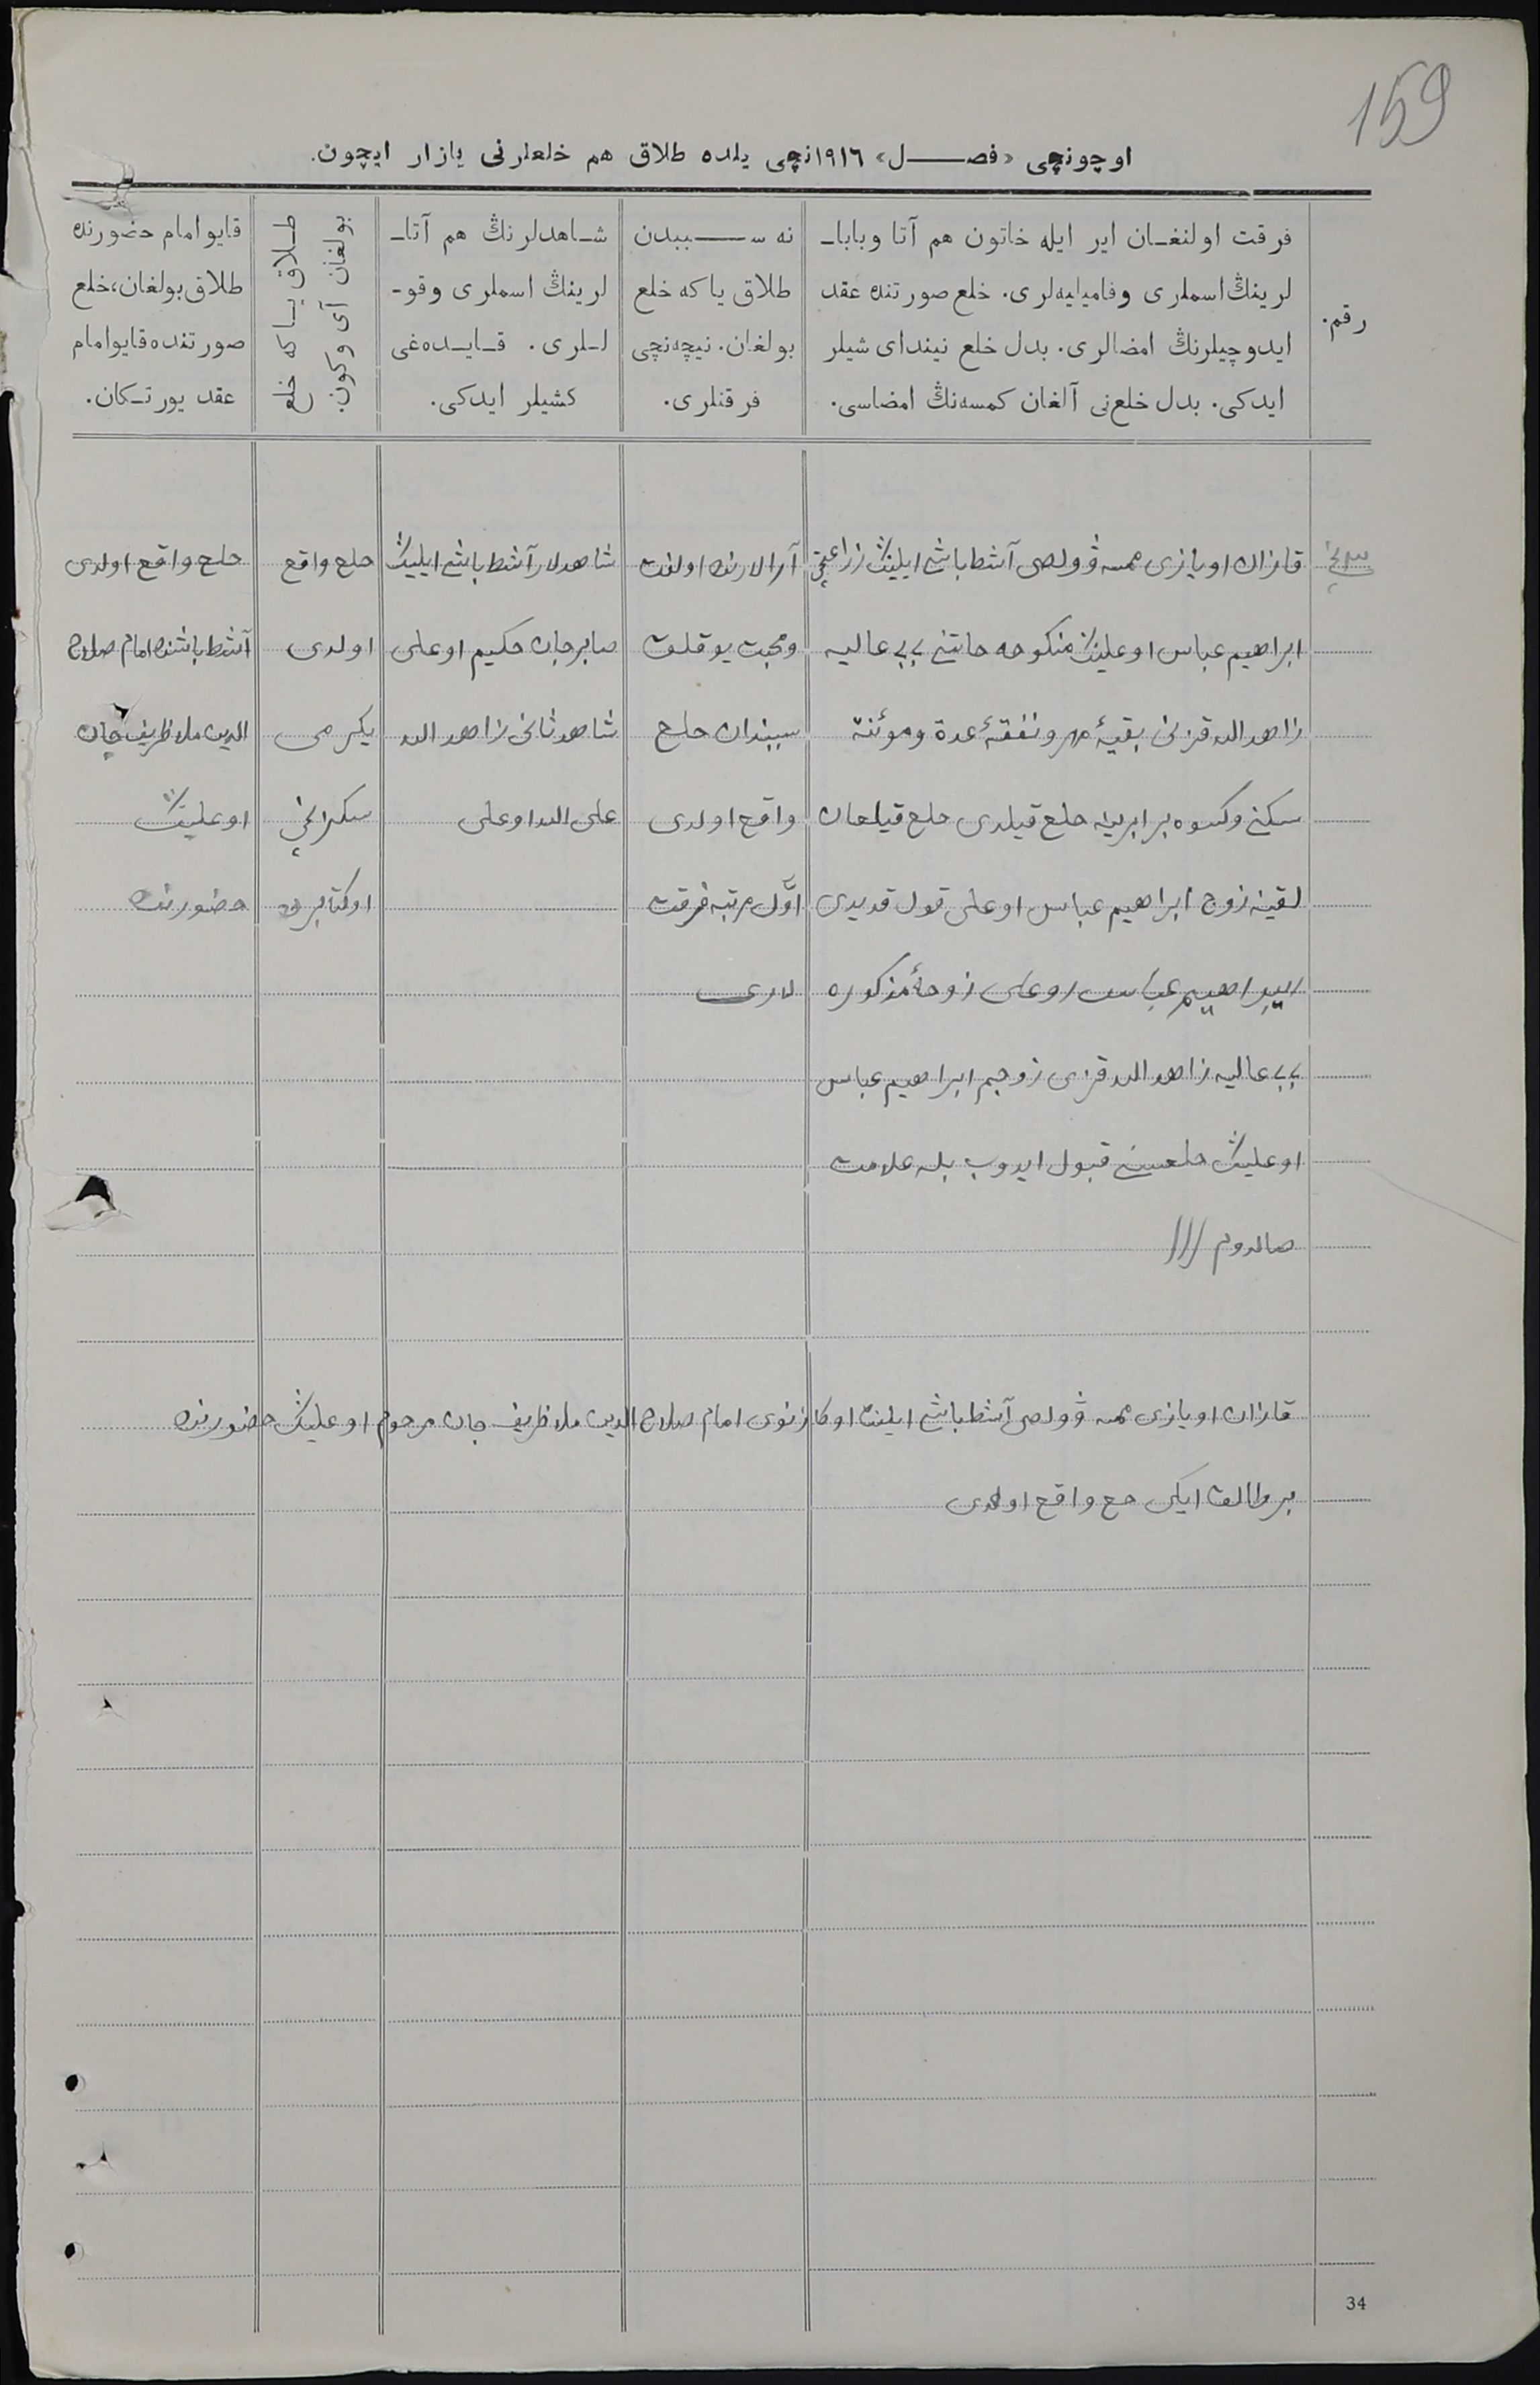 159
اوچونچی «فصل» ١٩١٦نچی یلده طلاق هم خلعلرنی یازار ایچون.
رقم.
فرقت اولنغان ایر ایله خاتون هم آتا وبابا-
لرینڭ اسملری وفامیلیه‌لری. خلع صورتنده عقد
ایدوچیلرنڭ امضالری. بدل خلع نیندای شیلر
ایدکی. بدل خلع‌نی آلغان کمسه‌نڭ امضاسی.
نه سببدن
طلاق یا که خلع
بولغان. نیچه‌نچی
فرقتلری.
شاهدلرنڭ هم آتا-
لرینڭ اسملری وقو-
لـلری. قایده‌غی
کشیلر ایدکی.
طلاق یا که خلع
بولغان آی وکون.
قایو امام حضورنده
طلاق بولغان، خلع
صورتنده قایو امام
عقد یورتکان.
قازان اویازی ڤولصی آشطباش ایلینڭ
ابراهیم عباس اوغلینڭ منکوحه خاتینی بی بی عالیه
زاهد الله قزنی بقیهٔ مهر ونفقهٔ عدة وموئنة
سکنی وکسوه برابرینه خلع قیلدی خلع قیلغان
زوج ابراهیم عباس اوغلی قول قویدی
ابراهیم عباس اوغلی زوجهٔ مذکوره
بی بی عالیه زاهد الله قزی زوجم ابراهیم عباس
اوغلینڭ خلعسینی قبول ایدوب بله علامت
صالدوم ///
آرالارنده اولفت
ومحبت یوقلق
سببندان خلع
واقع اولدی
اوّل مرتبه فرقت
لاری
شاهدلار آشطباش ایلینڭ
صابرجان حکیم اوغلی
شاهد ثانی زاهد الله
علی الله اوغلی
خلع واقع
اولدی
یکرمی
سکزنچی
اوکتابرده
خلع واقع اولدی
آشطباشنڭ امام صلاح
الدین ملا ظریف جان
اوغلینڭ
حضورنده
قازان اویازی ڤولصی آشطباش ایلینڭ اوکازنوی امام صلاح الدین ملا ظریف جان مرحوم اوغلینڭ حضورنده
بر طلاق ایکی خلع واقع اولدی
34